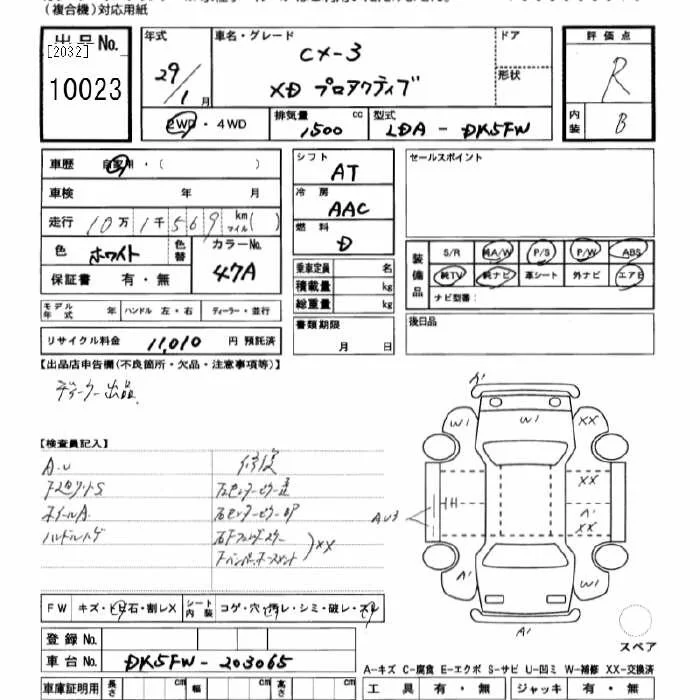 (複合機)対応用紙
出品No.
[2032]
10023
年式
29/1月
車名・グレード
CX-3
XD プロアクティブ
ドア
形状
評価点
R
内装 B
2WD・4WD
排気量 1500 cc
型式 LDA-DK5FW
車歴 自家用・( )
車検 年 月
走行 10万1千569 km マイル( )
色 ホワイト
色替
カラーNo. 47A
保証書 有・無
モデル年式 年 ハンドル 左・右 ディーラー・並行
リサイクル料金 11,010 円 預託済
シフト AT
冷房 AAC
燃料 D
乗車定員 名
積載量 kg
総重量 kg
書類期限
月 日
セールスポイント
装備品
S/R 純A/W P/S P/W ABS
純TV 純ナビ 革シート 外ナビ エアB
ナビ型番:
後日品
【出品店申告欄(不良箇所・欠品・注意事項等)】
ディーラー出品
【検査員記入】
A.U 修復
ホイールA
ハンドルスレ
XX
A'
W1 W1 XX
XX
A'
XX
AU3
A' W1
A1
FW キズ・トビ石・割レX シート内装 コゲ・穴・汚レ・シミ・破レ・スレ
登録No.
車台No. DK5FW-203065
スペア
A-キズ C-腐食 E-エクボ S-サビ U-凹ミ W-補修 XX-交換済
車庫証明用 長さ cm 幅 cm 高さ cm
工具 有・無 ジャッキ 有・無